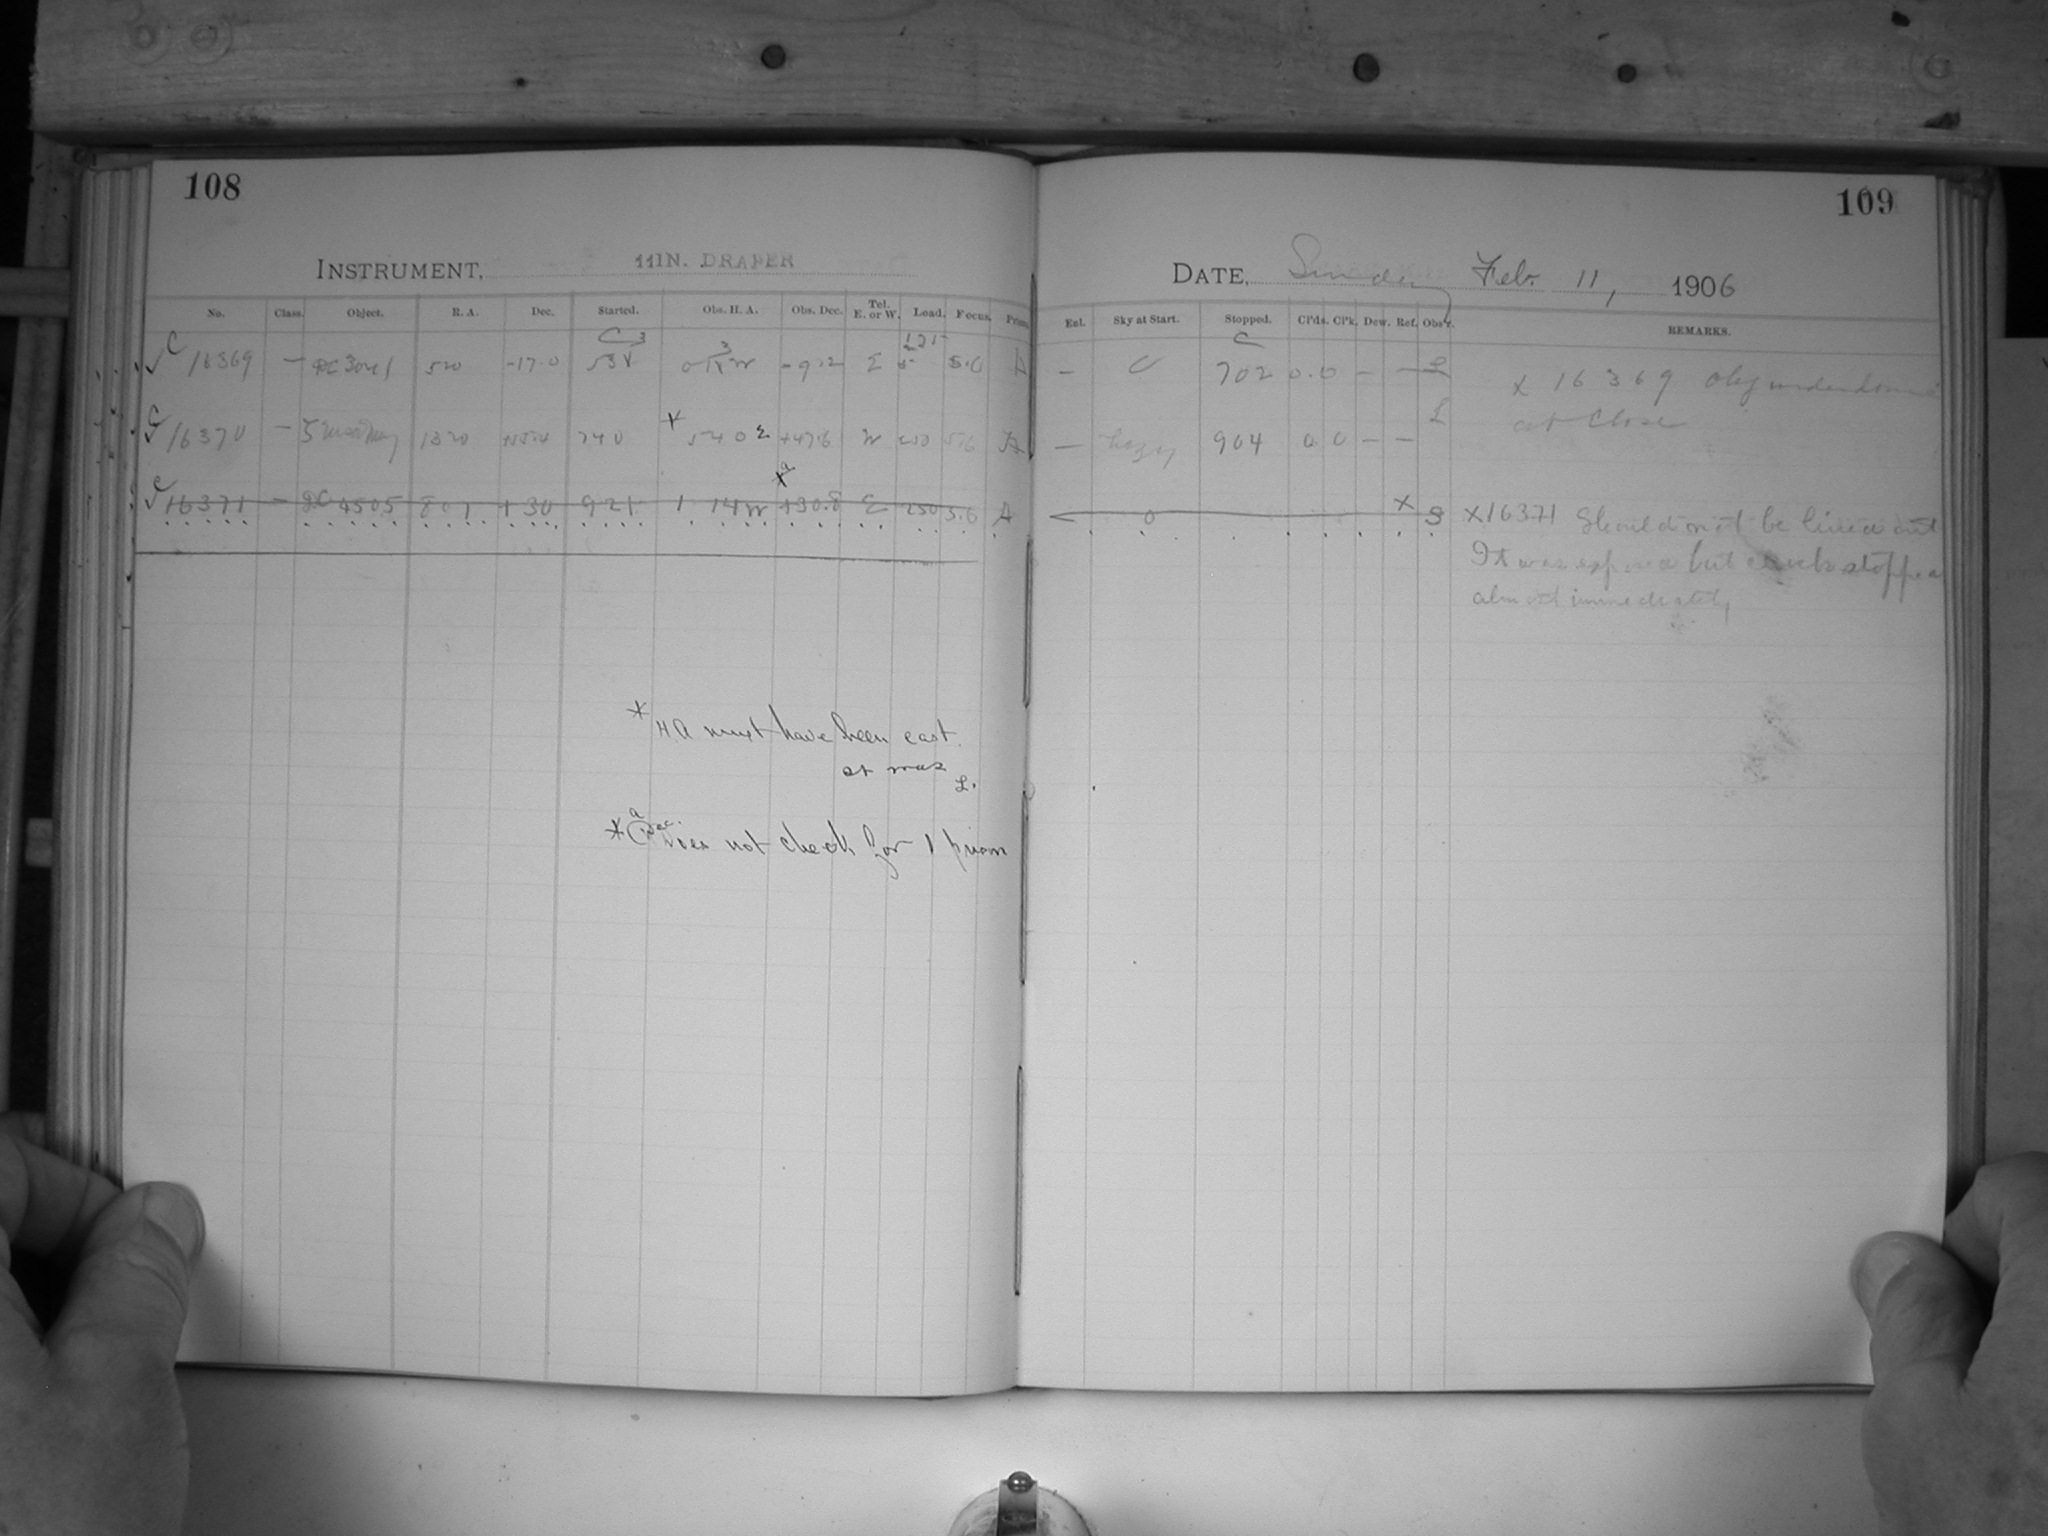 108
INSTRUMENT, 11IN. DRAPER
No. Class. Object. R. A. Dec. Started. Obs. H. A. Obs. Dec. Tel. E. or W. Load. Focus. Prism.
√ C 16369 — 520 -17.0 E 5.6 A
√ C 16370 — 1320 740 * 540 E +47.6 W 250 5.6 A
√ C 16371 — DC 4505 801 +30 921 1 14 W +30.8 E 250 5.6 A
* HA must have been east
at was L.
*a Dec. Does not check for 1 prism
109
DATE, Sunday Feb. 11, 1906
Enl. Sky at Start. Stopped. Cl'ds. Cl'k. Dew. Ref. Obs'r. REMARKS.
— C 702 0.0 — — L x 16369
at close
— hazy 904 0.0 — — L
0 x S x16371 Should not be lined out
It was exposed but clouds stopped
almost immediately